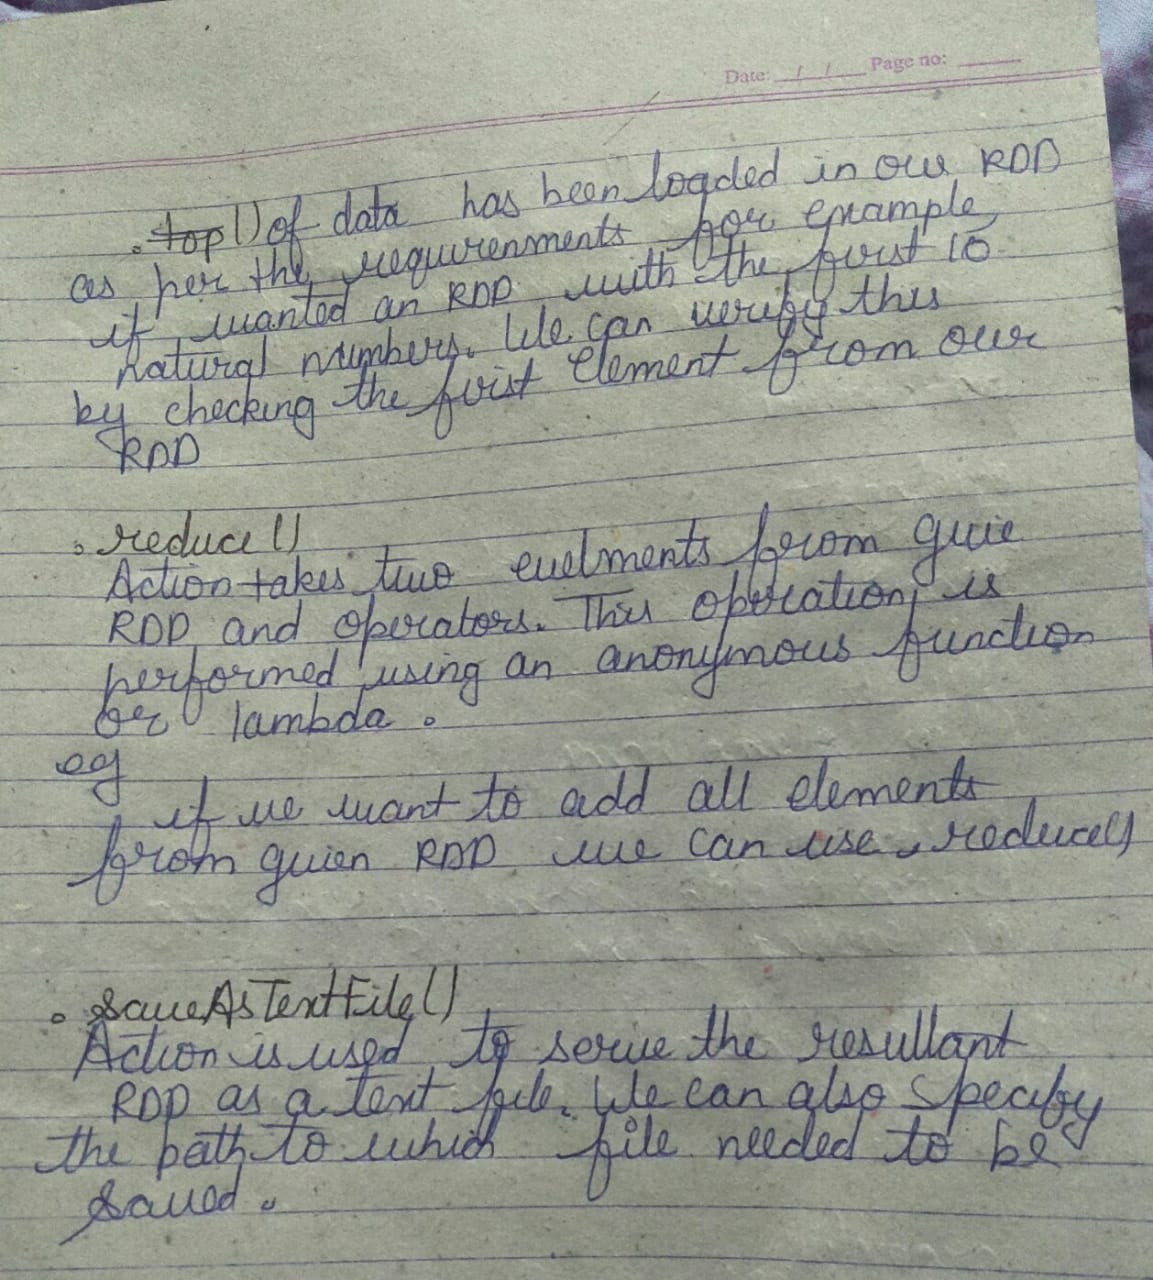 Date: __/__/__ Page no: ____
.top() of data has been loaded in our RDD
as per the requirenments for example
if wanted an RDD with the first 10
natural numbers. We can verify this
by checking the first element from our
RDD
. reduce()
Action takes two evelments from give
RDD and operators. This operation is
performed using an anonymous function
or lambda.
eg
if we want to add all elements
from guien RDD we can use .reduce()
. saveAsTextFile()
Action is used to serve the resultant
RDD as a text file. We can also specify
the path to which file needed to be
saved.